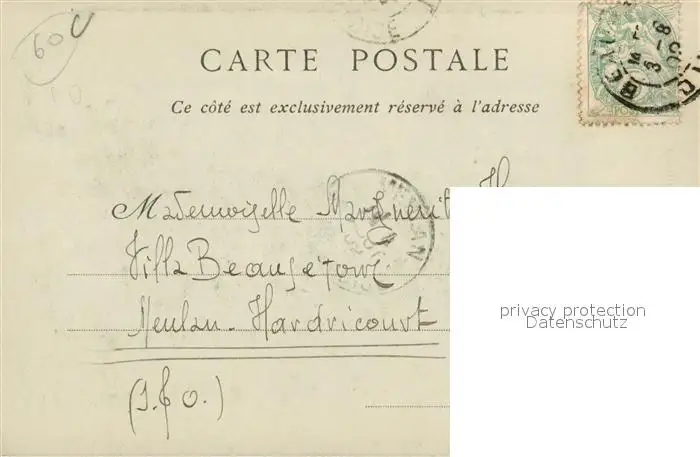 60c
CARTE POSTALE
Ce côté est exclusivement réservé à l'adresse
Mademoiselle Marguerit H
Villa Beauséjour
Meulan-Hardricourt
(S. & O.)
privacy protection
Datenschutz